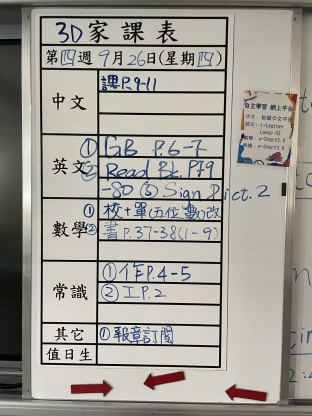 3D家課表
第四週9月26日(星期四)
中文
課P.9-11
英文
① GB P.6-7
② Read Bk. P.79
-80 ③ Sign Dict. 2
數學
① 校十單(五位數)改
② 書P.37-38(1-9)
常識
① 作P.4-5
② 工P.2
其它
① 報章訂閱
值日生
自主學習 網上平台
i-Learner